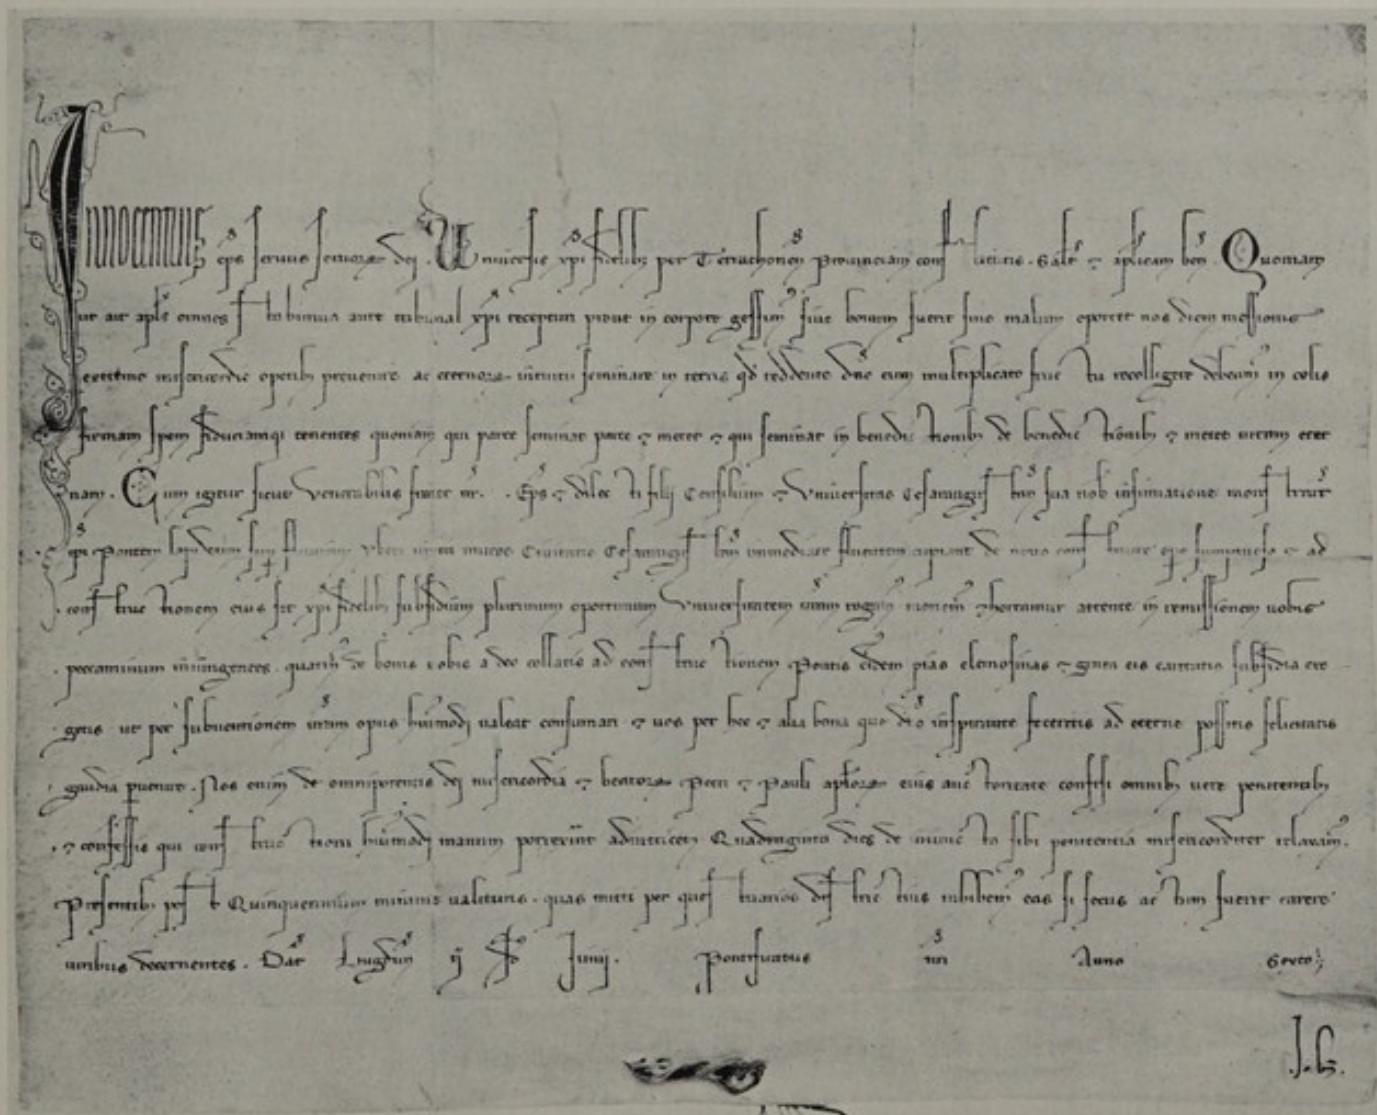 Innocentius eps servus servorꝝ dei. Universis xpi fidelibꝫ per Terrachonen Provinciam constitutis. Salt̄ ⁊ aplicam ben̄. Quoniam
ut ait apls omnes stabimus ante tribunal xpi recepturi prout in corpore gessimꝰ sive bonum fuerit sive malum oportet nos diem messionis
extreme misericordie operibꝫ prevenire ac eternorꝝ intuitu seminare in terris qd reddente dno cum multiplicato fructu recolligere debeamꝰ in celis
firmam spem fiduciamqꝫ tenentes quoniam qui parce seminat parce ⁊ metet ⁊ qui seminat in benedictionibꝫ de benedictionibꝫ ⁊ metet vitam eter
nam. Cum igitur sicut Venerabilis frater nr̄. . Eps ⁊ dilecti filij Consilium ⁊ Universitas Cesaraugustan̄ sua nob insinuatione monstrarūt
ipi Pontem lapideum sup fluvium Yberi iuxta muros Civitatis Cesaraugustan̄ immediate fluentem cupiant de novo construere opere sumptuoso ⁊ ad
constructionem eius sit xpi fidelibꝫ subsidium plurimum oportunum Universitatem vr̄am rogamꝰ monemꝰ ⁊ hortamur attente in remissionem vobis
peccaminum iniungentes. quatinꝰ de bonis vobis a deo collatis ad constructionem Pontis eiusdem pias elemosinas ⁊ grata eis caritatis subsidia ero
getis ut per subventionem vr̄am opus huiꝰmodi valeat consumari ⁊ vos per hec ⁊ alia bona que dno inspirante feceritis ad eterne possitis felicitatis
gaudia pvenire. Nos enim de omnipotentis dei misericordia ⁊ beatorꝝ Petri ⁊ Pauli aplorꝝ eius auctoritate confisi omnibꝫ vere penitentibꝫ
⁊ confessis qui constructioni huiꝰmodi manum porrexerint adiutricem Quadraginta dies de iniuncta sibi penitentia misericorditer relaxamꝰ.
Presentibꝫ post Quinquennium minime valituris. quas mitti per questuarios districtius inhibemꝰ eas si secus actum fuerit carere
viribus decernentes. Dat̄ Lugdun̄ ij Id Junij. Pontificatus nr̄i Anno Sexto